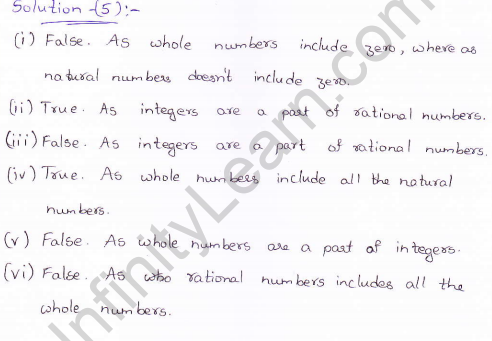 Solution -(5):-
(i) False. As whole numbers include zero, where as
natural numbers doesn't include zero.
(ii) True. As integers are a part of rational numbers.
(iii) False. As integers are a part of rational numbers.
(iv) True. As whole numbers include all the natural
numbers.
(v) False. As whole numbers are a part of integers.
(vi) False. As who rational numbers includes all the
whole numbers.
InfinityLearn.com